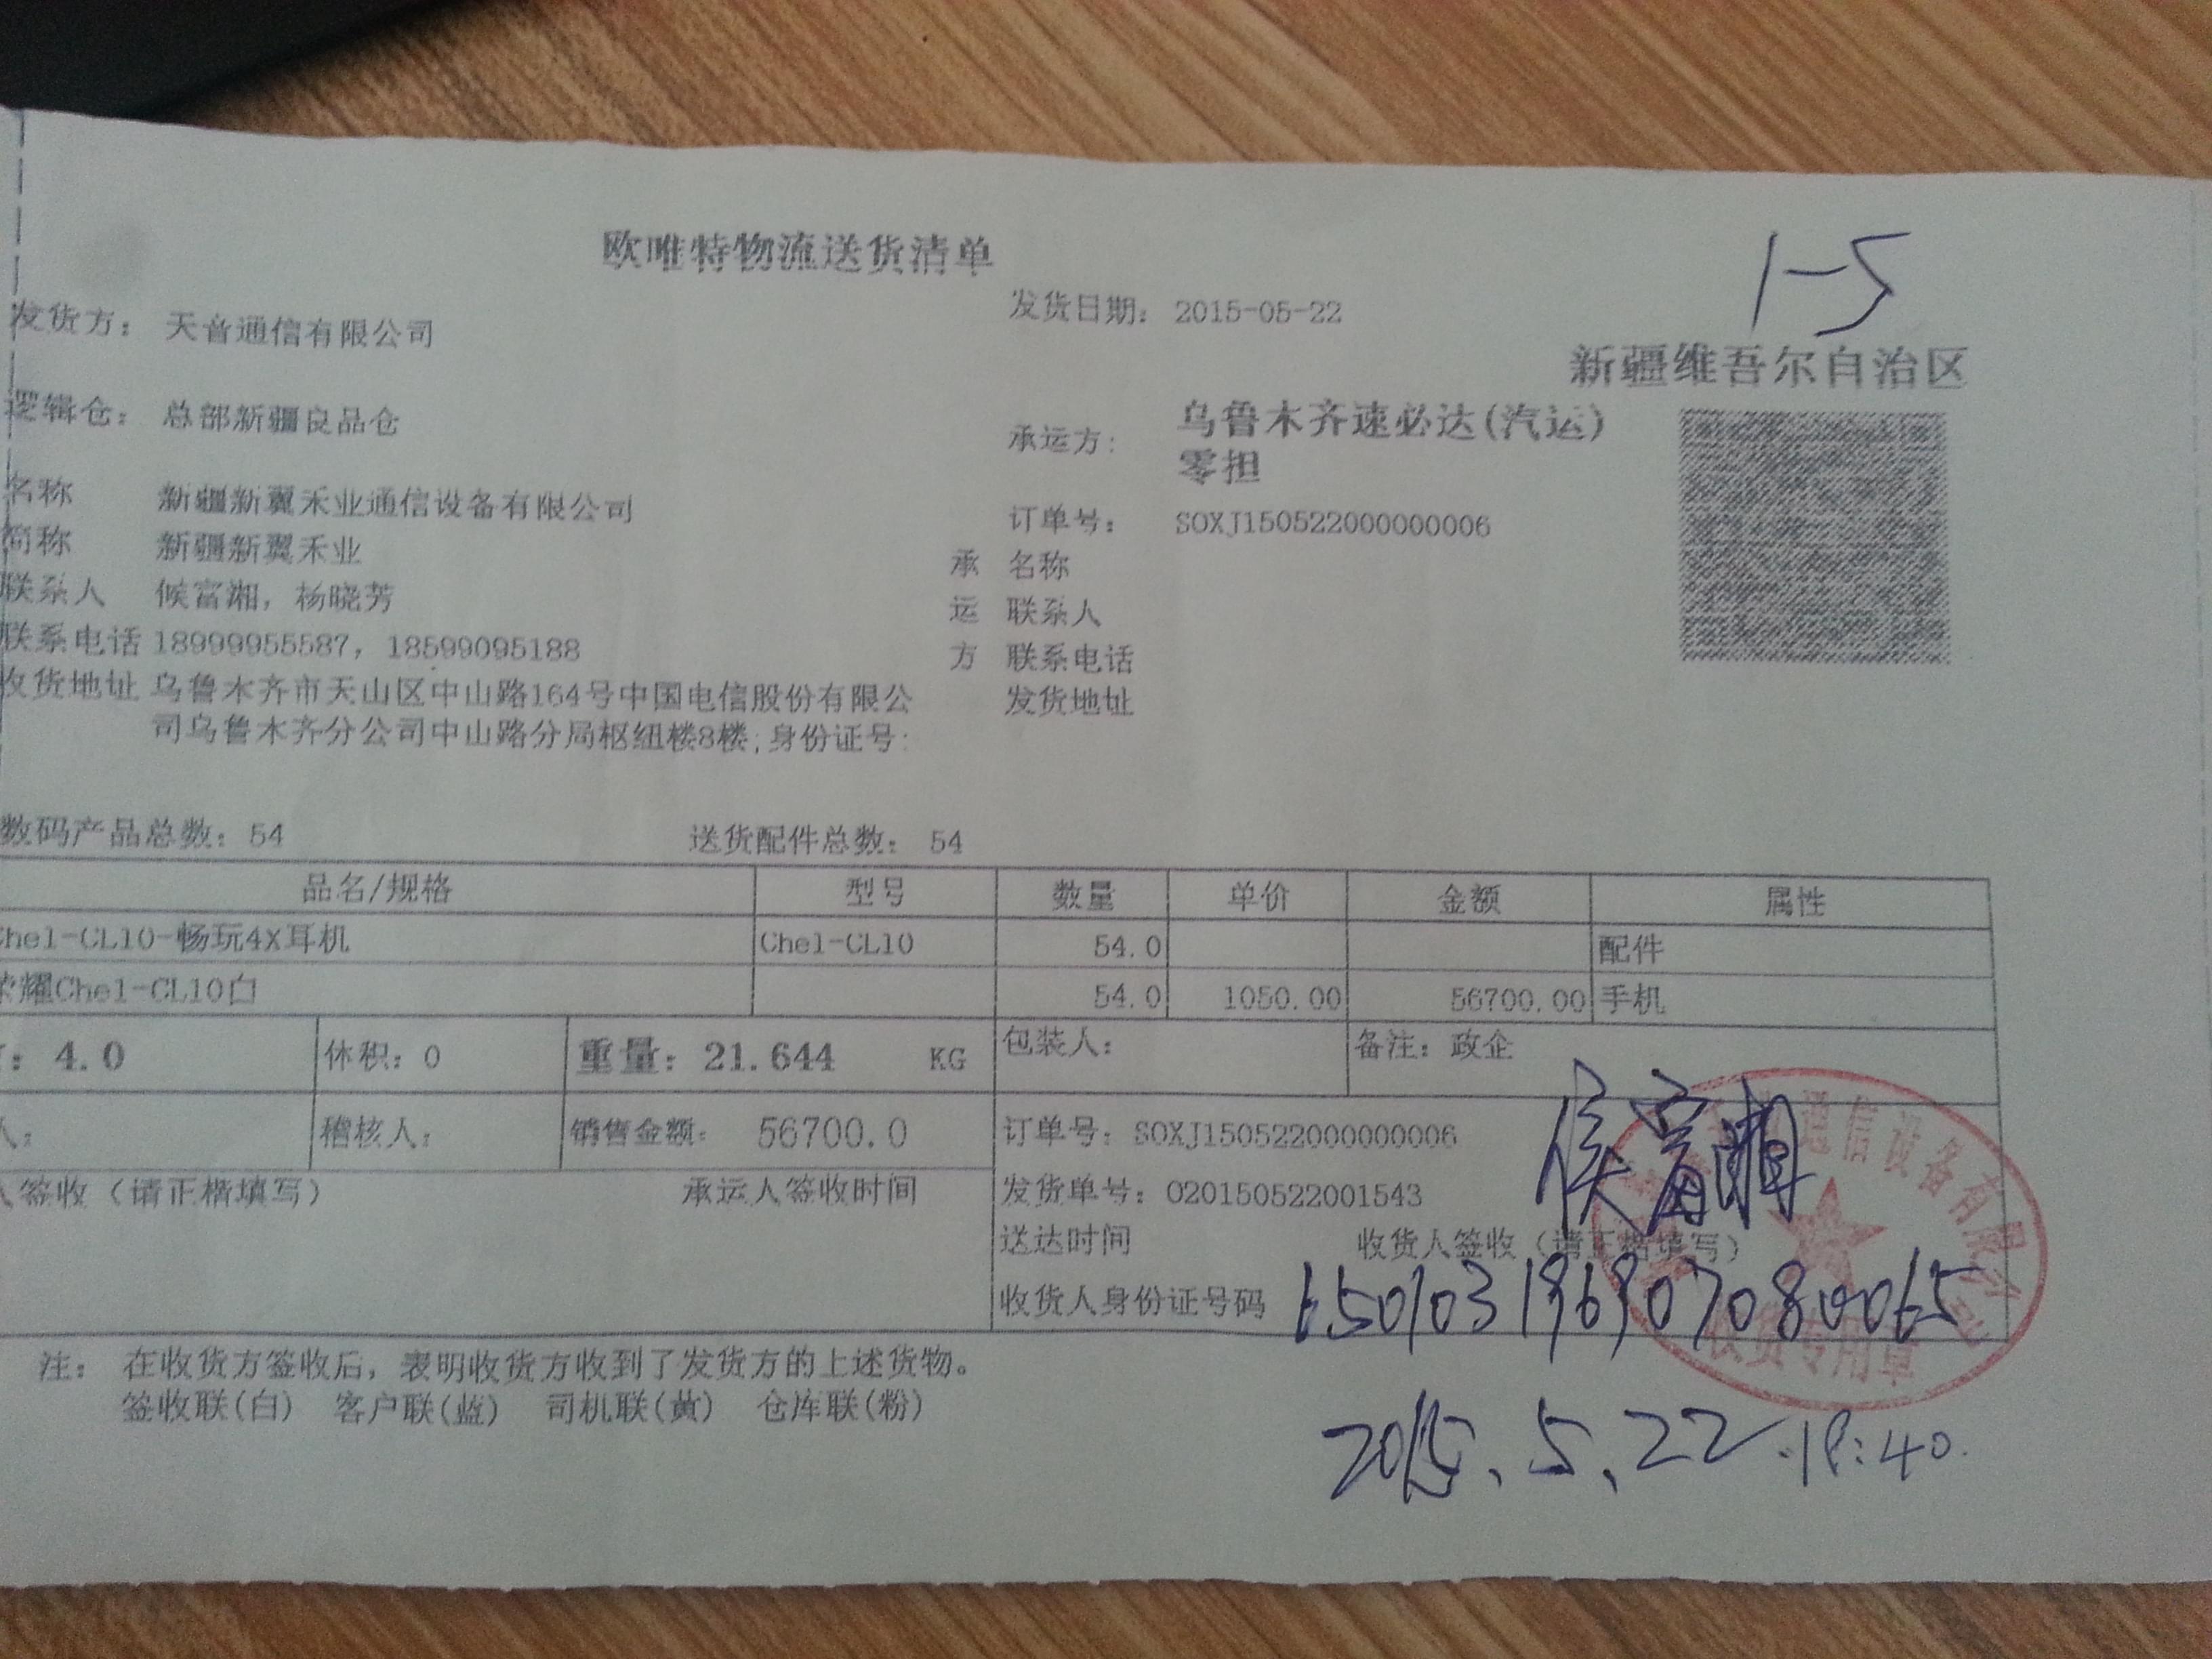 欧唯特物流送货清单
1-5
发货方： 天音通信有限公司
发货日期： 2015-05-22
新疆维吾尔自治区
逻辑仓： 总部新疆良品仓
承运方： 乌鲁木齐速必达(汽运)
零担
名称 新疆新翼禾业通信设备有限公司
订单号： SOXJ150522000000006
简称 新疆新翼禾业
承 名称
联系人 候富湘，杨晓芳
运 联系人
联系电话 18999955587，18599095188
方 联系电话
收货地址 乌鲁木齐市天山区中山路164号中国电信股份有限公
发货地址
司乌鲁木齐分公司中山路分局枢纽楼8楼;身份证号:
数码产品总数： 54 送货配件总数： 54
品名/规格 型号 数量 单价 金额 属性
Che1-CL10-畅玩4X耳机 Che1-CL10 54.0 配件
荣耀Che1-CL10白 54.0 1050.00 56700.00 手机
：4.0 体积：0 重量：21.644 KG 包装人： 备注：政企
人： 稽核人： 销售金额： 56700.0 订单号：SOXJ150522000000006
侯富湘
通信设备有限公司
人签收（请正楷填写） 承运人签收时间 发货单号：O20150522001543
送达时间 收货人签收（请正楷填写）
收货人身份证号码 650103196907080065
收货专用章
注： 在收货方签收后，表明收货方收到了发货方的上述货物。
签收联(白) 客户联(蓝) 司机联(黄) 仓库联(粉)
2015.5.22.18:40.